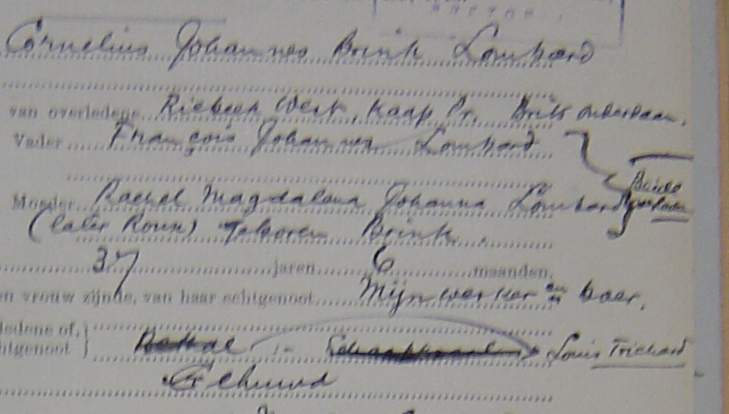 Cornelius Johannes Brink Lombard
van overledene Riebeek West, Kaap Pr. Brits onderdaan.
Vader François Johannes Lombard
Beide
Moeder Rachel Magdalena Johanna Lombard
(later Roux) Geboren Brink.
37 jaren 6 maanden
en vrouw zijnde, van haar echtgenoot Mijnwerker en boer.
ledene of,
htgenoot } Louis Trichard
Gehuwd